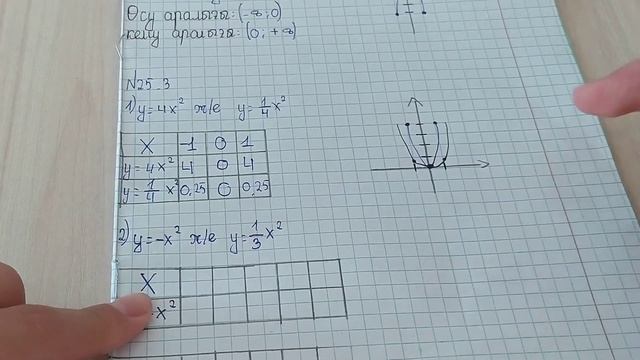 Өсу аралығы: (-∞; 0)
кему аралығы: (0; +∞)
№25.3
1) y=4x² ж/е y=1/4 x²
X -1 0 1
y=4x² 4 0 4
y=1/4 x² 0,25 0 0,25
2) y=-x² ж/е y=1/3 x²
X
-x²